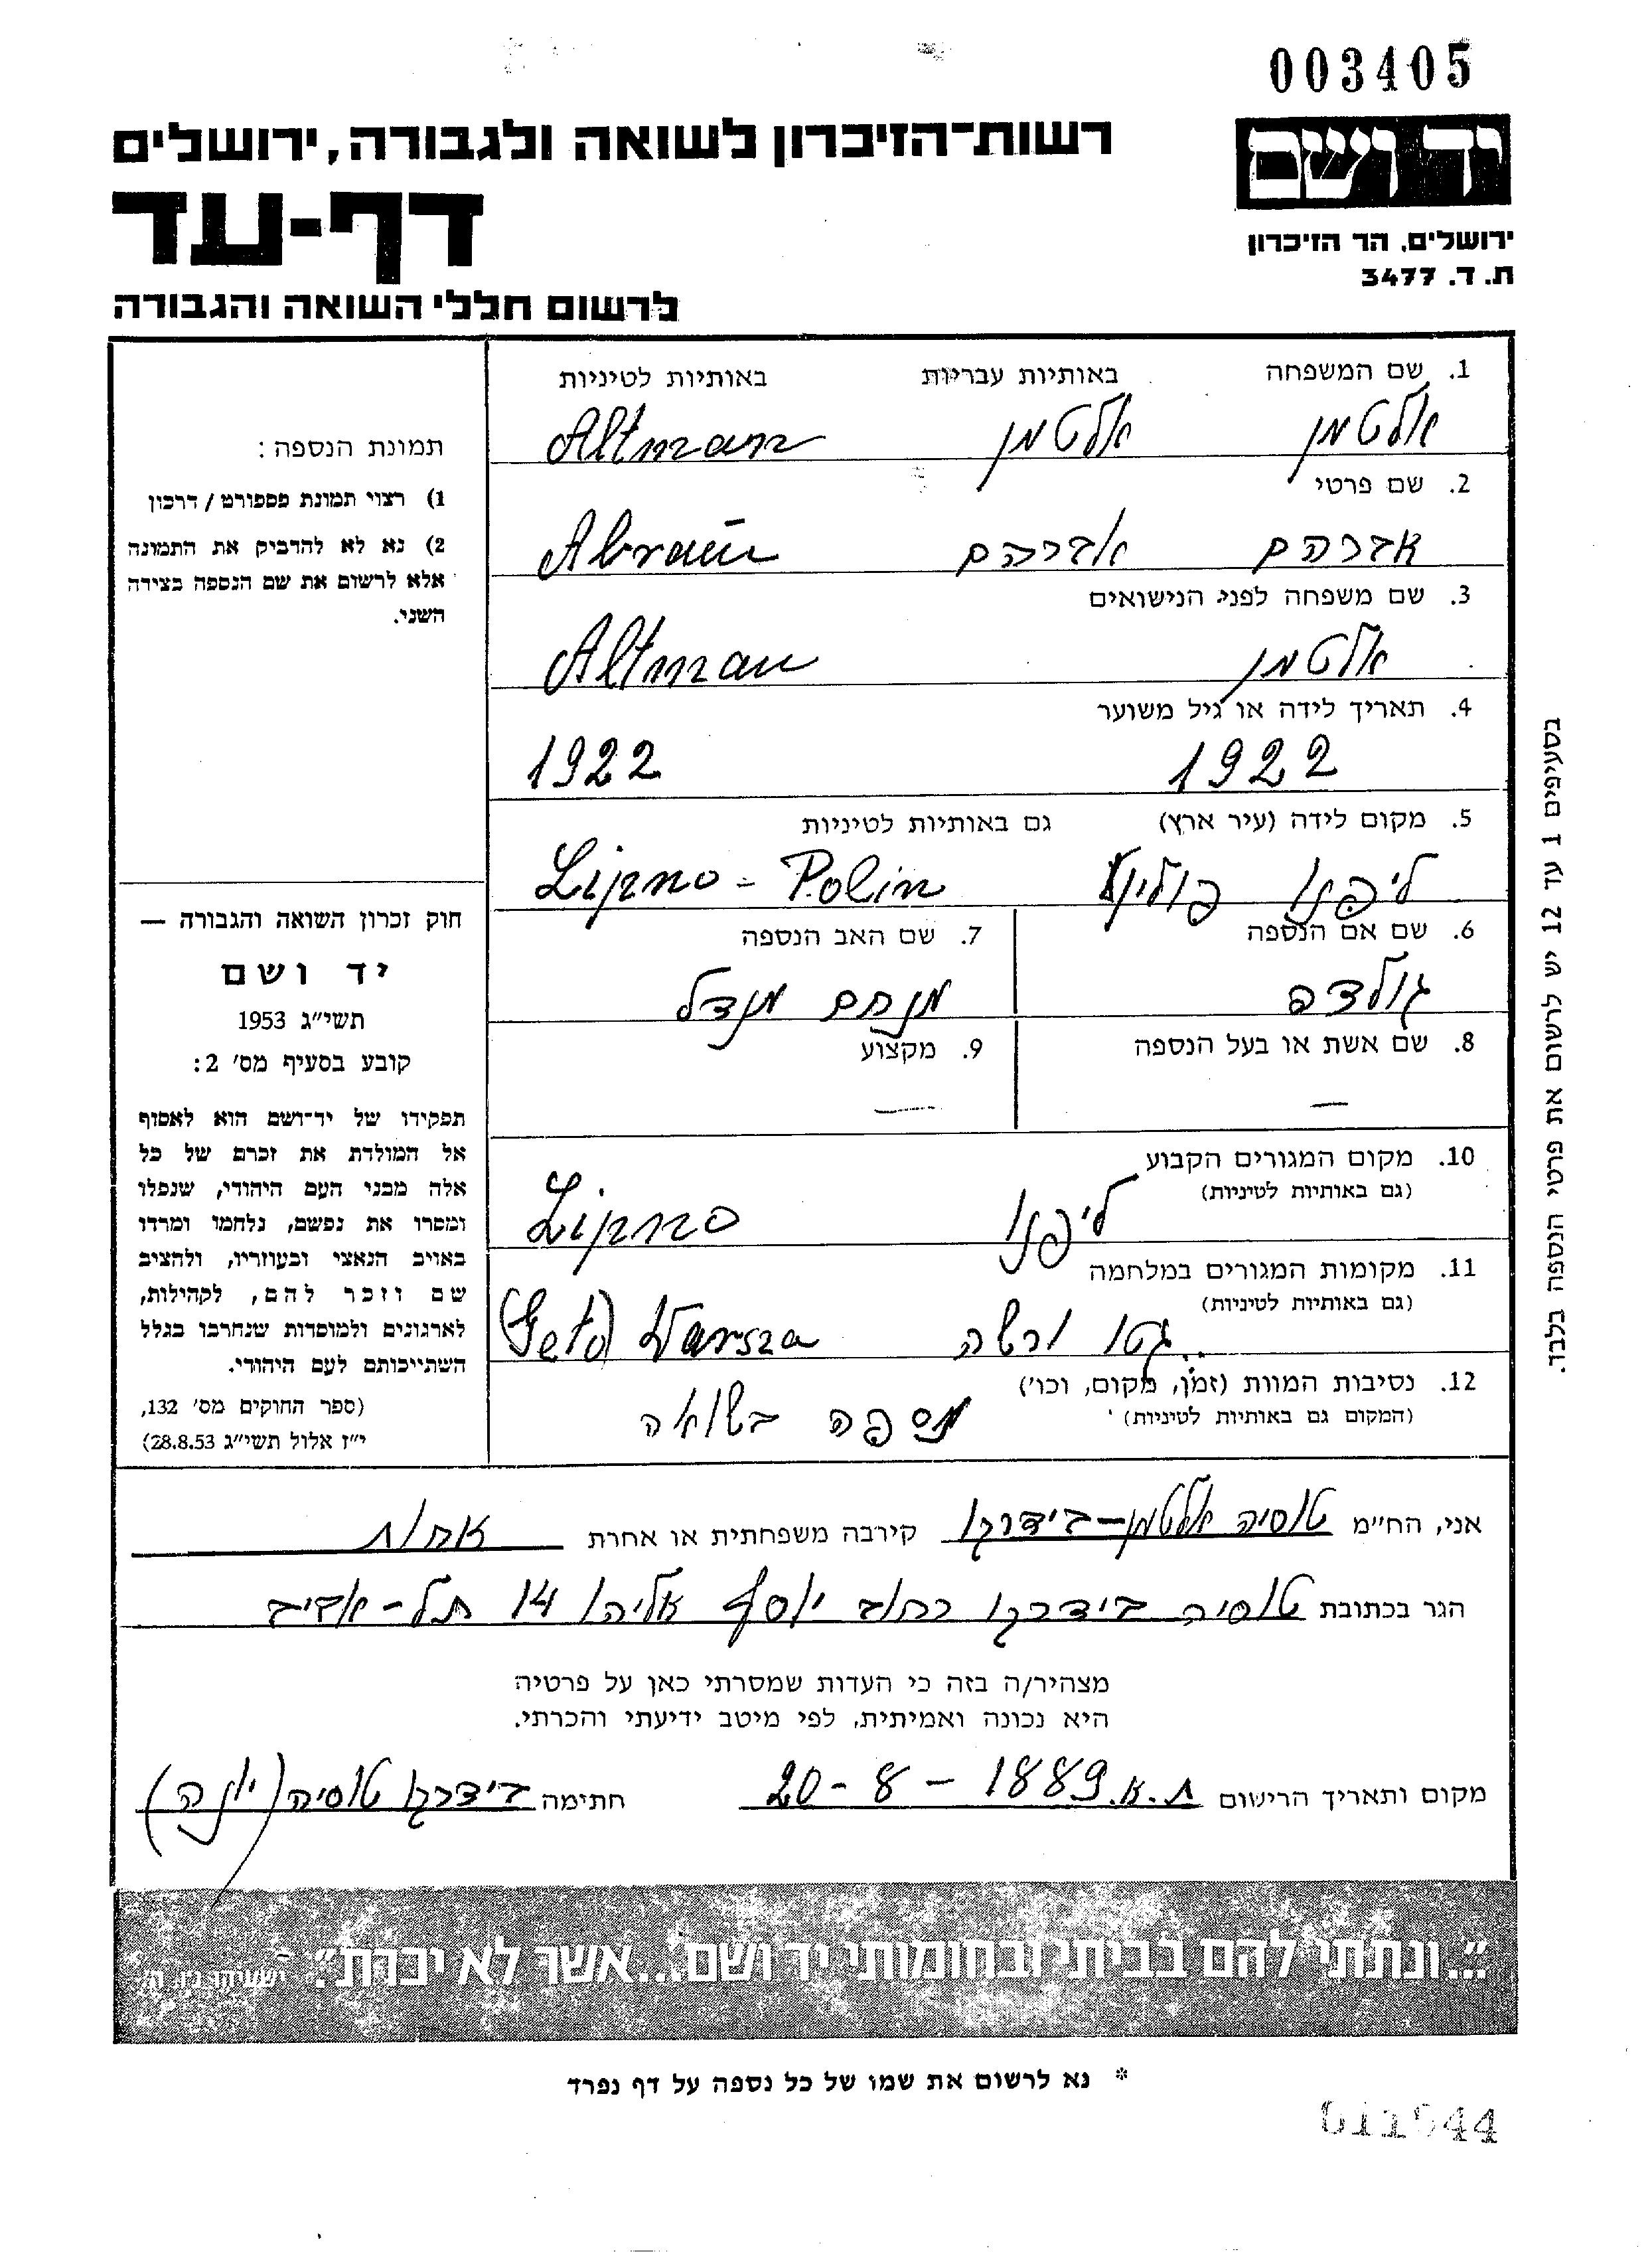 003405
יד ושם
רשות-הזיכרון לשואה ולגבורה, ירושלים
דף-עד
ירושלים, הר הזיכרון
ת. ד. 3477
לרשום חללי השואה והגבורה
1. שם המשפחה באותיות עבריות באותיות לטיניות
אלטמן אלטמן Altman
2. שם פרטי
אברהם אברהם Abram
3. שם משפחה לפני הנישואים
אלטמן Altman
4. תאריך לידה או גיל משוער
1922 1922
5. מקום לידה (עיר ארץ) גם באותיות לטיניות
ליפנו פולין Lipno - Polin
6. שם אם הנספה 7. שם האב הנספה
גולדה מנחם מנדל
8. שם אשת או בעל הנספה 9. מקצוע
— —
10. מקום המגורים הקבוע
(גם באותיות לטיניות)
ליפנו Lipno
11. מקומות המגורים במלחמה
(גם באותיות לטיניות)
גטו ורשה Geto Warsza
12. נסיבות המוות (זמן, מקום, וכו')
(המקום גם באותיות לטיניות)
נספה בשואה
תמונת הנספה:
1) רצוי תמונת פספורט / דרכון
2) נא לא להדביק את התמונה
אלא לרשום את שם הנספה בצידה
השני.
חוק זכרון השואה והגבורה —
יד ושם
תשי״ג 1953
קובע בסעיף מס׳ 2:
תפקידו של יד-ושם הוא לאסוף
אל המולדת את זכרם של כל
אלה מבני העם היהודי, שנפלו
ומסרו את נפשם, נלחמו ומרדו
באויב הנאצי ובעוזריו, ולהציב
שם וזכר להם, לקהילות,
לארגונים ולמוסדות שנחרבו בגלל
השתייכותם לעם היהודי.
(ספר החוקים מס׳ 132,
י״ז אלול תשי״ג 28.8.53)
בסעיפים 1 עד 12 יש לרשום את פרטי הנספה בלבד.
אני, הח״מ טוסיה אלטמן-בידרקו קירבה משפחתית או אחרת אחות
הגר בכתובת טוסיה בידרקו רחוב יוסף אליהו 14 תל-אביב
מצהיר/ה בזה כי העדות שמסרתי כאן על פרטיה
היא נכונה ואמיתית, לפי מיטב ידיעתי והכרתי.
מקום ותאריך הרישום ת.א. 20-8-1989 חתימה בידרקו טוסיה (יונה)
"...ונתתי להם בביתי ובחומותי יד ושם...אשר לא יכרת". ישעיהו נו, ה
* נא לרשום את שמו של כל נספה על דף נפרד